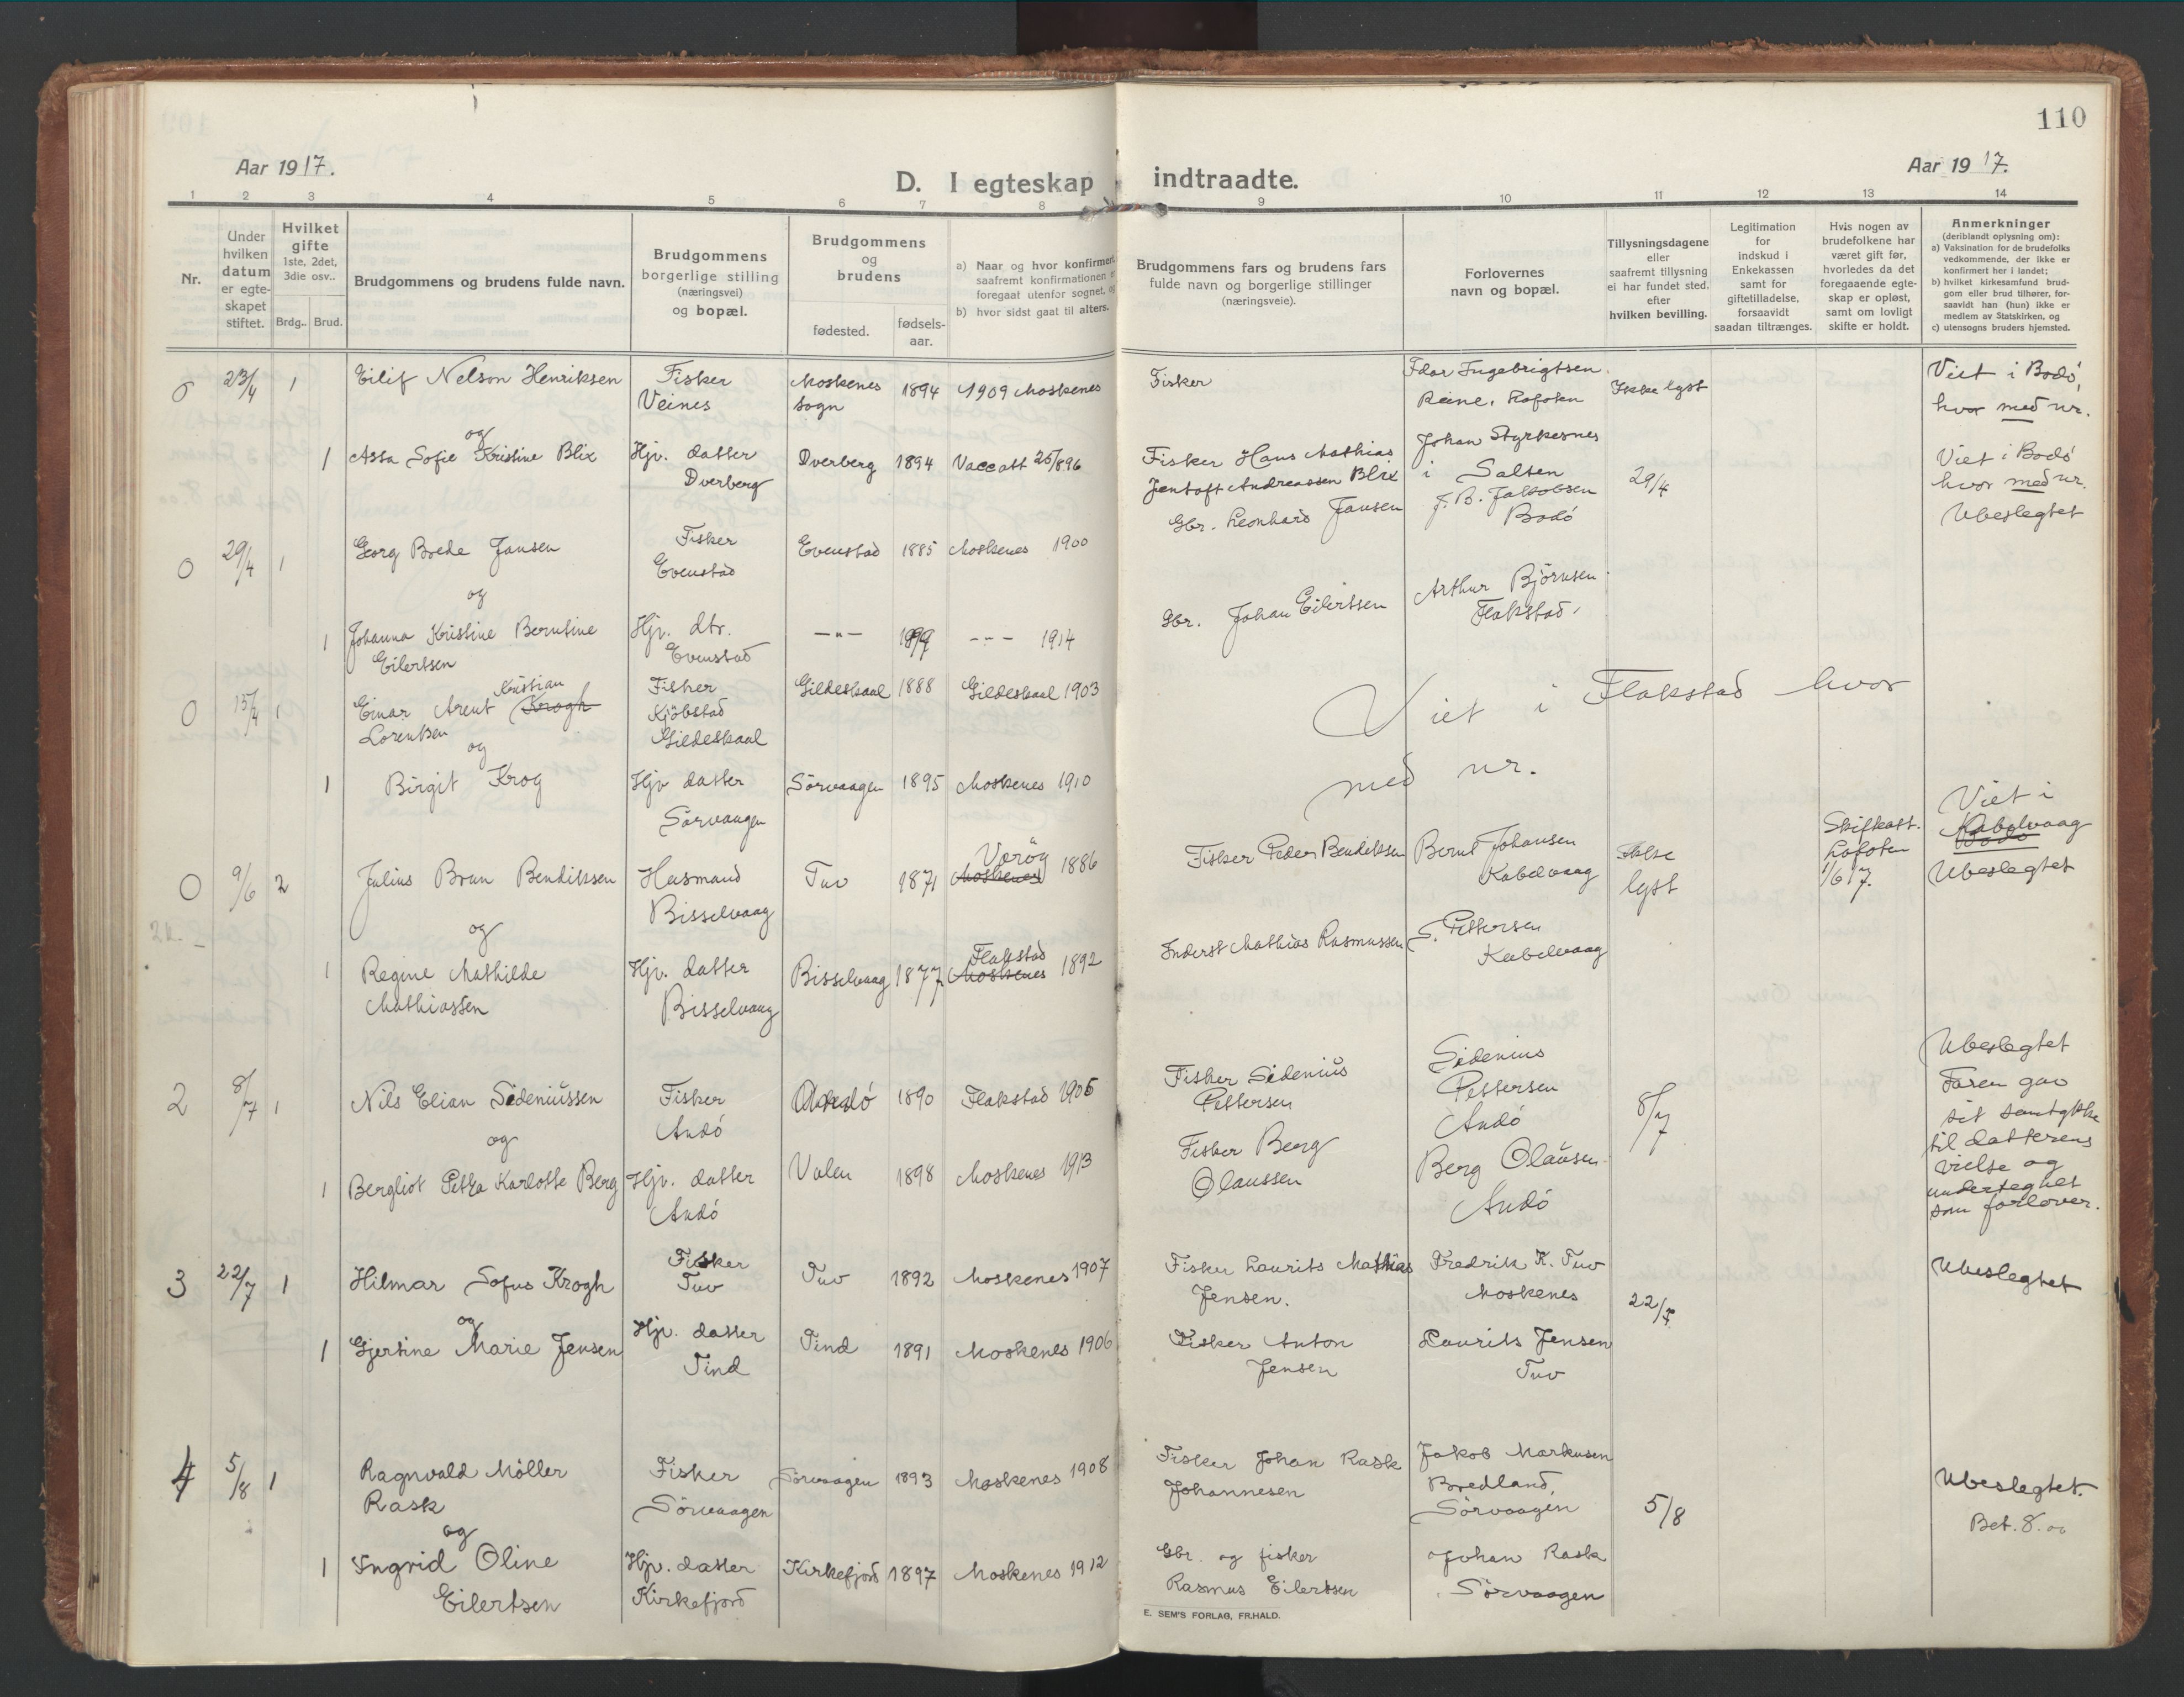 110
Aar 1917.
D. I egteskap indtraadte.
Aar 1917.
1 2 3 4 5 6 7 8 9 10 11 12 13 14
Nr.
Under hvilken datum er egteskapet stiftet.
Hvilket gifte 1ste, 2det, 3die osv..
Brdg.. Brud.
Brudgommens og brudens fulde navn.
Brudgommens borgerlige stilling (næringsvei) og bopæl.
Brudgommens og brudens
fødested. fødsels-aar.
a) Naar og hvor konfirmert, saafremt konfirmationen er foregaat utenfor sognet, og
b) hvor sidst gaat til alters.
Brudgommens fars og brudens fars fulde navn og borgerlige stillinger (næringsveie).
Forlovernes navn og bopæl.
Tillysningsdagene eller saafremt tillysning ei har fundet sted. efter hvilken bevilling.
Legitimation for indskud i Enkekassen samt for giftetilladelse, forsaavidt saadan tiltrænges.
Hvis nogen av brudefolkene har været gift før, hvorledes da det foregaaende egteskap er opløst, samt om lovligt skifte er holdt.
Anmerkninger
(deriblandt oplysning om):
a) Vaksination for de brudefolks vedkommende, der ikke er konfirmert her i landet;
b) hvilket kirkesamfund brudgom eller brud tilhører, forsaavidt han (hun) ikke er medlem av Statskirken, og
c) utensogns bruders hjemsted.
0 23/4 1 Eilif Nelson Henriksen Fisker Veines Moskenes sogn 1894 1909 Moskenes Fisker Ingebrigtsen Reine. Lofoten Ikke lyst Viet i Bodö, hvor med nr.
og
1 Assa Sofie Kristine Blix Hjv. datter Dverberg Dverberg 1894 Vacc att 25/896 Fisker Hans Mathias Jentoft Andreassen Blix Johan Styrkesnes i Salten Viet i Bodö hvor med nr.
0 29/4 1 Georg Brede Jansen Fisker Evenstad Evenstad 1885 Moskenes 1900 Gbr. Leonhard Jansen J. B. Jakobsen Bodö 29/4 Ubeslegtet
og
1 Johanna Kristine Berntine Eilertsen Hjv. dtr. Evenstad —"— 1897 --- 1914 Gbr. Johan Eilertsen Arthur Björnsen Flakstad.
0 15/4 1 Einar Arent Kristian Krogh Lorentsen Fisker Kjöbstad Gildeskaal Gildeskaal 1888 Gildeskaal 1903 Viet i Flakstad hvor
og
1 Birgit Krog Hjv datter Sörvaagen Sörvaagen 1895 Moskenes 1910 med nr.
0 9/6 2 Julius Brun Bendiksen Husmand Bisselvaag Tuv 1871 Moskenes Værøy 1886 Fisker Peder Bendiksen Bernt Johansen Kabelvaag Ikke lyst Skifteatt. Lofoten 1/6 17. Viet i Bodö Kabelvaag Ubeslegtet
og
1 Regine Mathilde Mathiassen Hjv. datter Bisselvaag Bisselvaag 1877 Moskenes Flakstad 1892 Inderst Mathias Rasmussen S. Pettersen Kabelvaag
2 8/7 1 Nils Elian Sideniussen Fisker Andö Andö 1890 Flakstad 1905 Fisker Sidenius Pettersen Sidenius Pettersen Andö 8/7 Ubeslegtet Faren gav sit samtykke til datterens vielse og undertegnet som forlover.
og
1 Bergliot Petra Karlotte Berg Hjv. datter Andö Valen 1898 Moskenes 1913 Fisker Berg Olaussen Berg Olausen Andö
3 22/7 1 Hilmar Sofus Krogh Fisker Tuv Tuv 1892 Moskenes 1907 Fisker Laurits Mathias Jensen. Fredrik K. Tuv Moskenes 22/7 Ubeslegtet
og
1 Gjertine Marie Jensen Hjv. datter Tind Tind 1891 Moskenes 1906 Fisker Anton Jensen Laurits Jensen Tuv
4 5/8 1 Ragnvald Möller Rask Fisker Sörvaagen Sörvaagen 1893 Moskenes 1908 Fisker Johan Rask Johannesen Jakob Markusen Bredland, Sörvaagen 5/8 Ubeslegtet. Bet. 8.00
og
1 Ingrid Oline Eilertsen Hjv. datter Kirkefjord Kirkefjord 1897 Moskenes 1912 Gbr. og fisker Rasmus Eilertsen Johan Rask Sörvaagen
E. SEM'S FORLAG, FR.HALD.